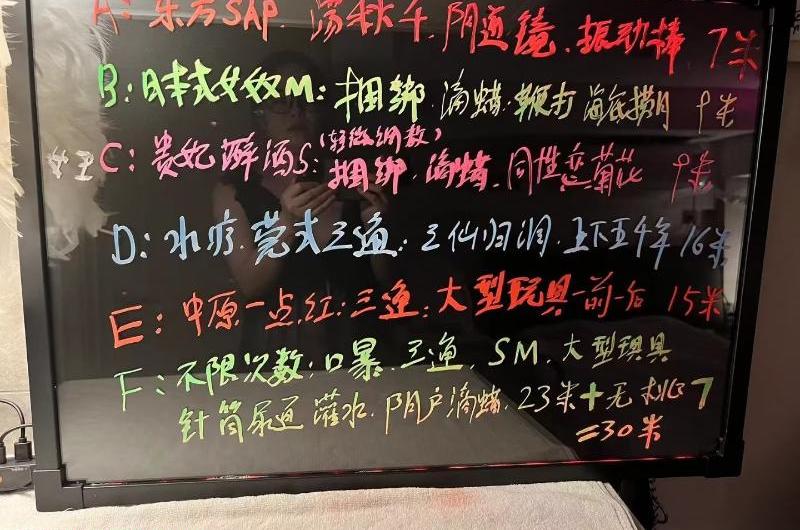 A: 东方SAP、荡秋千、阴道镜、振动棒 7米
B: 日本式女奴M: 捆绑 滴蜡 鞭打 海底捞月 9米
(轻微调教)
C: 贵妃醉酒S: 捆绑、滴蜡、同性恋菊花 9米
D: 水疗 莞式三通: 三仙归洞 上下五千年 16米
E: 中原一点红: 三通: 大型玩具一前一后 15米
F: 不限次数: 口暴、三通、SM、大型玩具
针筒尿道灌水、阴户滴蜡、23米+无 7
=30米